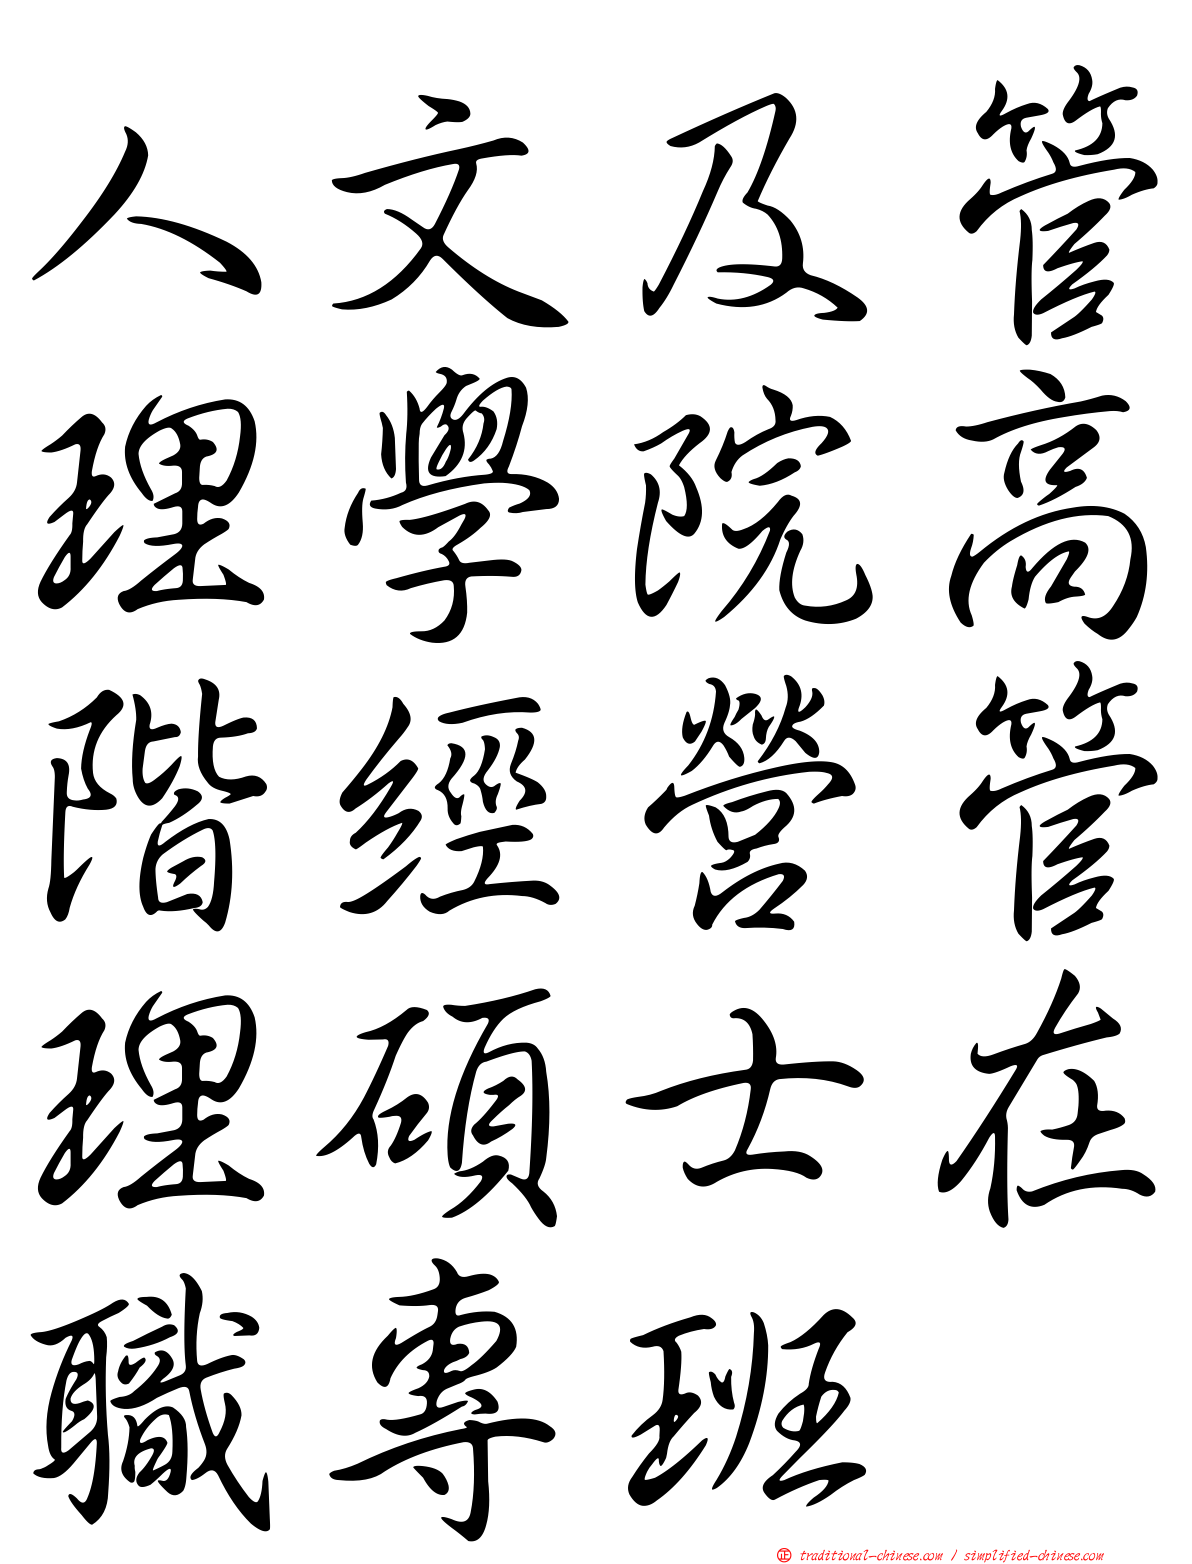 人文及管
理學院高
階經營管
理碩士在
職專班
㊣ traditional-chinese.com / simplified-chinese.com